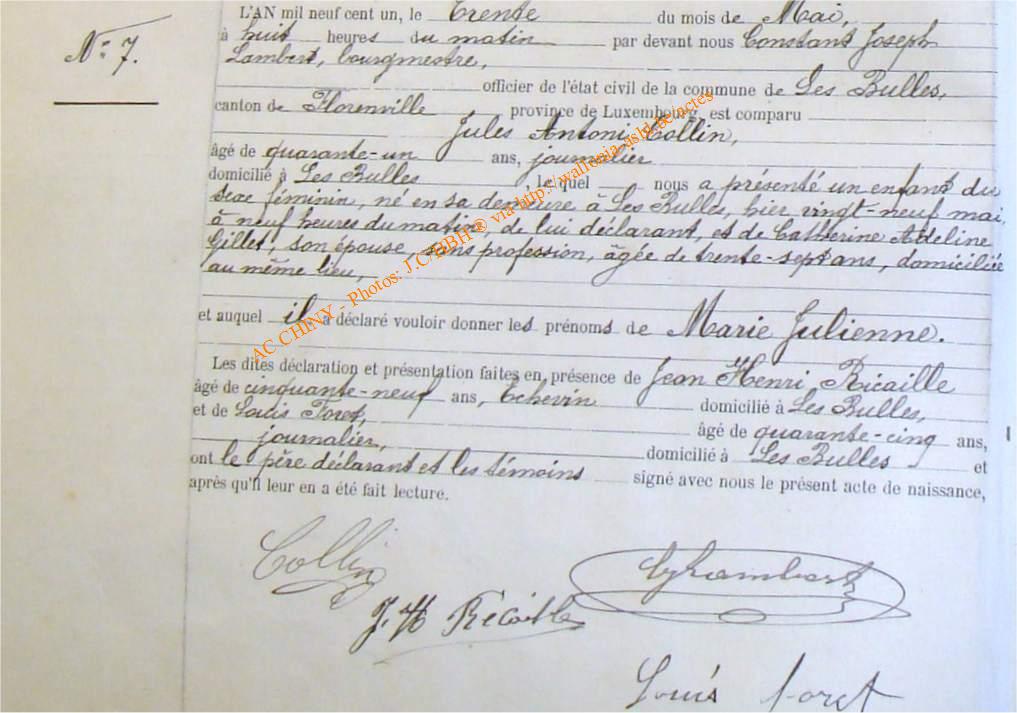 L'AN mil neuf cent un, le Trente du mois de Mai,
N° 7.
à huit heures du matin par devant nous Constant Joseph
Lambert, bourgmestre,
officier de l'état civil de la commune de Les Bulles,
canton de Florenville province de Luxembourg, est comparu
Jules Antoni Collin,
âgé de quarante-un ans, journalier
domicilié à Les Bulles, lequel nous a présenté un enfant du
sexe féminin, né en sa demeure à Les Bulles, hier vingt-neuf mai,
à neuf heures du matin, de lui déclarant, et de Catherine Adeline
Gillet, son épouse, sans profession, âgée de trente-sept ans, domiciliée
au même lieu,
et auquel il a déclaré vouloir donner les prénoms de Marie Julienne.
Les dites déclaration et présentation faites en présence de Jean Henri Ricaille
âgé de cinquante-neuf ans, Echevin domicilié à Les Bulles,
et de Louis Foret, âgé de quarante-cinq ans,
journalier, domicilié à Les Bulles et
ont le père déclarant et les témoins signé avec nous le présent acte de naissance,
après qu'il leur en a été fait lecture.
Collin
CJLambert
J. H Récaille
Louis foret
AC CHINY - Photos: J.C HBH ® via http://wallonia-asbl.be/actes